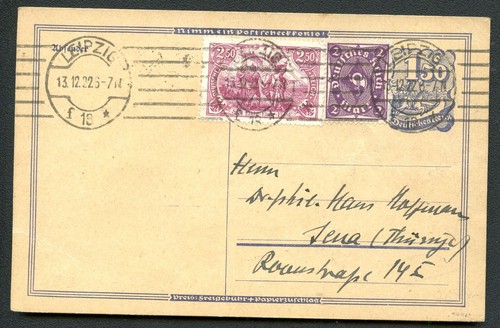 Nimm ein Postscheckkonto!
Absender
LEIPZIG
13.12.22 6-7N
f 13 *
2,50 2,50
LEIPZIG
Deutsches Reich
2 2
LEIPZIG
1,50
Deutsches Reich
Herrn
Dr. phil. Hans Hoffmann
Jena (Thüringen)
Roonstraße 14 I
Preis: Freigebühr + Papierzuschlag